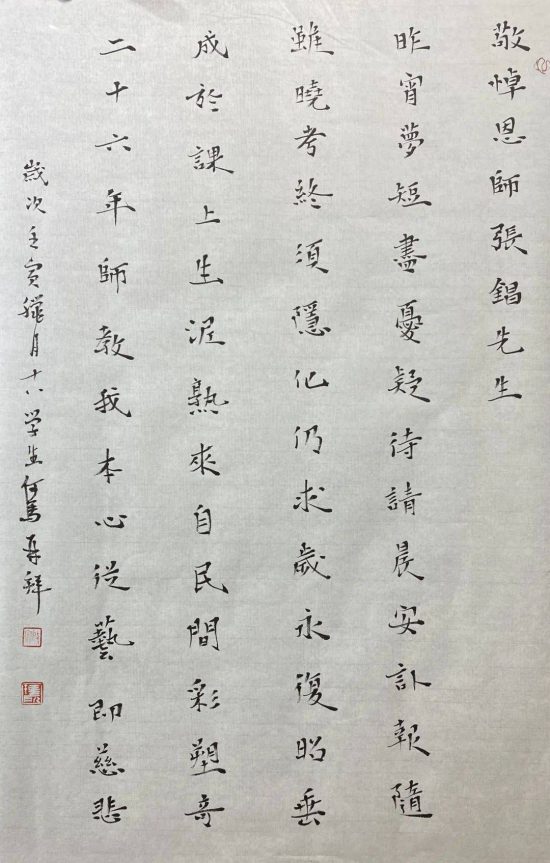 敬悼恩師張錩先生
昨宵夢短盡憂疑待請晨安訃報隨
雖曉考終須隱化仍求歲永復昭垂
成於課上生泥熟來自民間彩塑奇
二十六年師教我本心從藝即慈悲
歲次壬寅臘月十六学生何雋再拜